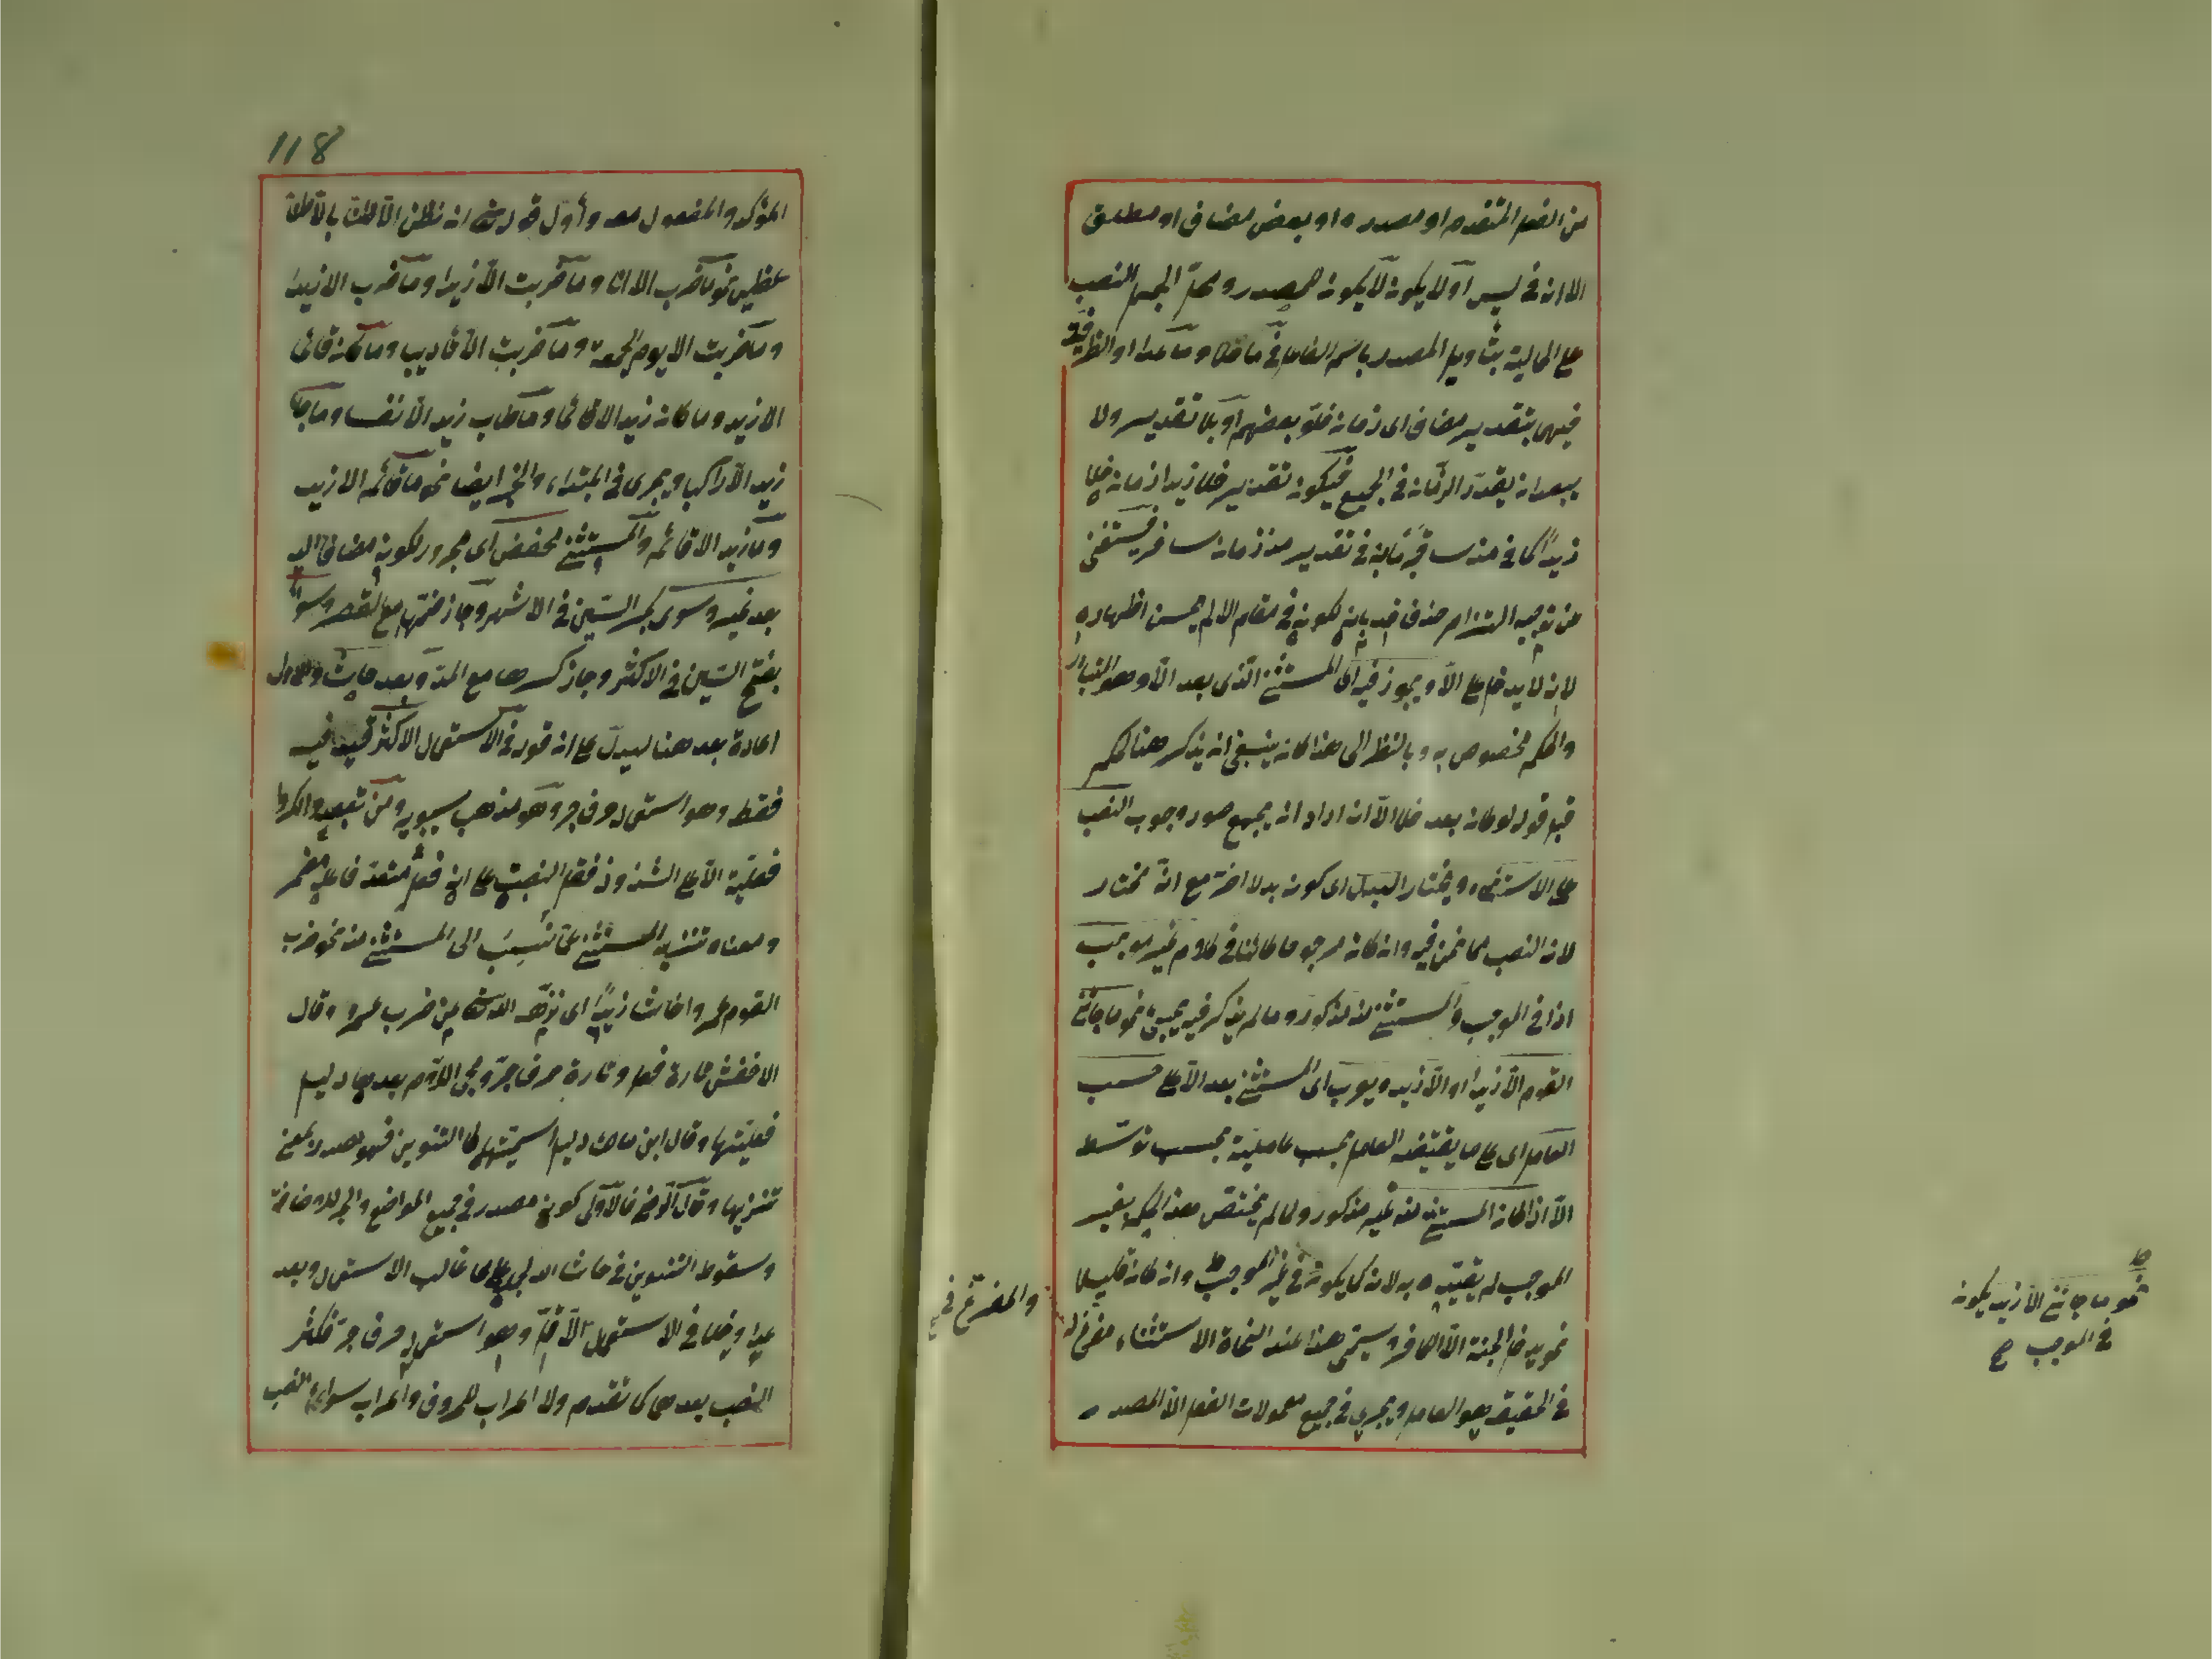 من الفعل المتقدم او مصدره او بعض مضاف او مطلق
الا انه فى ليس ولا يكون لا يكون المصدر ومحل الجمل النصب
على الحالية بتأويل المصدر باسم الفاعل فى ما خلا وما عدا او الظرفية
فيهما بتقدير مضاف اى زمان خلو بعضهم او بلا تقدير ولا
يبعد ان يقدر الزمان فى الجميع فيكون تقدير خلا زيدا زمان خلا
زيدا كما فى منذ سافر فانه فى تقدير منذ زمان سافر فيستغنى
عن توجيه التزام حذف قد بانه لكونه فى مقام الا لم يحسن اظهاره
لانه لا يدخل على الا ويجوز فيه اى المستثنى الذى بعد الا وهو المتبادر
والحكم مخصوص به وبالنظر الى هذا كان ينبغى ان يذكر هنا لكم
قبل قوله لو كان بعد خلا الا انه اراد ان يجمع صور وجوب النصب
على الاستثناء ويختار البدل اى كونه بدلا مع انه مختار
لان النصب مما نحن فيه وان كان مرجوحا كائنا فى كلام غير موجب
اذا فى الموجب والمستثنى منه مذكور وما لم يذكر فيه يجئ نحو ما جاءنى
القوم الا زيدا او الا زيد ويعرب اى المستثنى بعد الا على حسب
العامل اى على ما يقتضيه العامل بحسب عاملية بحسب توسط
الا اذا كان المستثنى منه غير مذكور ولما لم يختص هذا الحكم بغير
الموجب لم يقيده به لانه كما يكون فى غير الموجب وان كان قليلا
نحو يدخل الجنة الا الكافر ويسمى هذا عند النحاة الاستثناء مفرغ له
فى الحقيقة هو العامل ويجرى فى جميع معمولات الفعل الا المصدر
والمفرغ فى
نحو ما جاءنى الا زيد يكون
فى الموجب صح
118
المؤكد والمفعول معه وأول قوله تعالى ان نظن الا ظنا بالا ظنا
عظيما نحو ما ضرب الا انا وما ضربت الا زيدا وما ضرب الا زيدا
وما ضربت الا يوم الجمعة وما ضربت الا تأديبا وما كان قائما
الا زيد وما كان زيد الا قائما وما طاب زيد الا نفسا وما جاء
زيد الا راكبا ويجرى فى المبتداء والخبر ايضا نحو ما قائم الا زيد
وما زيد الا قائم والمستثنى مخفوض اى مجرور لكونه مضافا اليه
بعد غير وسوى بكسر السين فى الاشهر وجاز ضمها مع القصر وسواء
بفتح السين فى الاكثر وجاز كسرها مع المد وبعد حاشا
اعادة بعد هنا ليدل على ان قوله فى الاستعمال الاكثر قيد فيه
فقط وهو استعماله حرف جر وهو مذهب سيبويه ومن تبعه وانكروا
فعليته الا على الشذوذ فقط النصب على انه فعل متعد فاعله مضمر
ومعناه تنزيه المستثنى عما نسب الى المستثنى منه نحو ضرب
القوم عمروا حاشا زيدا اى نزهه الله تعالى عن ضرب عمرو وقال
الاخفش تارة فعل وتارة حرف جر ومجئ اللام بعدها دليل
فعليتها وقال ابن مالك دليل اسميتها التنوين فهو مصدر بمعنى
تنزيها وقال الرضى فالاولى كونه مصدر فى جميع المواضع والجر للاضافة
وسقوط التنوين فى حاشا لله على ما غالب الاستعمال وبعد
عدا وخلا فى الاستعمال الاقل وهو استعماله حرف جر فكثر
النصب بعدهما كما تقدم ولا اعراب للحروف واعراب سواء النصب